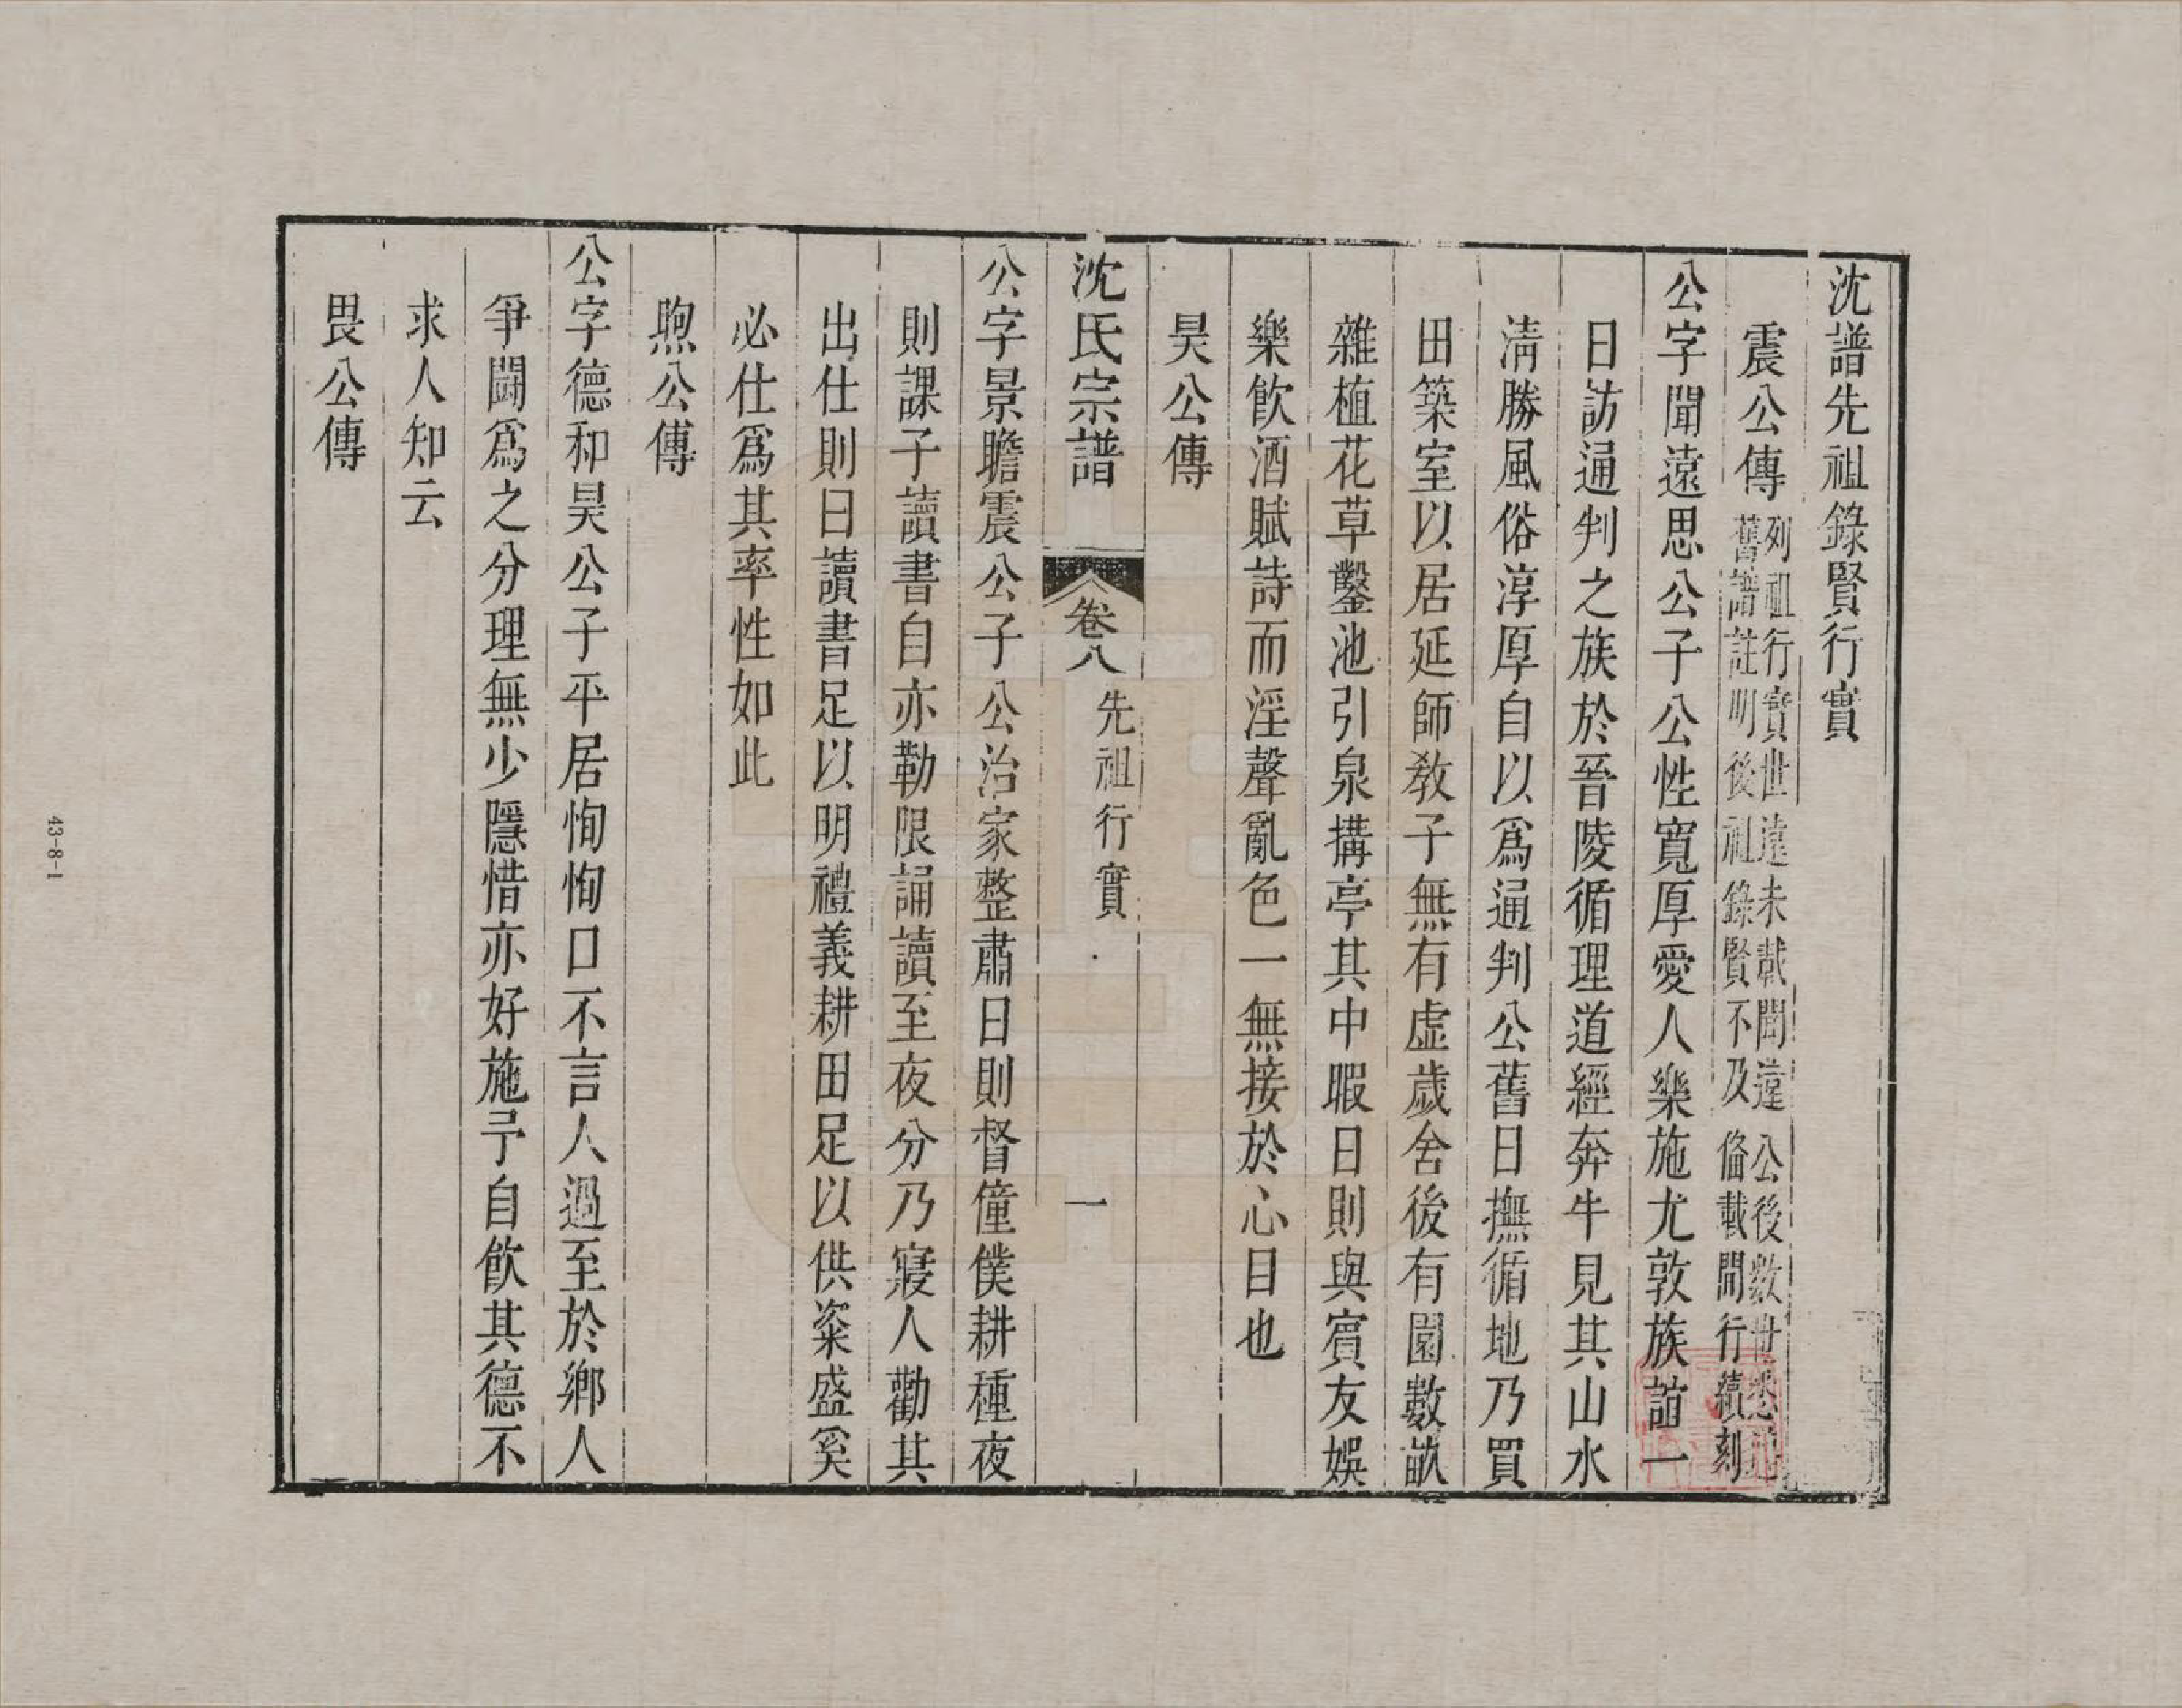 沈譜先祖錄賢行實
震公傳 列祖行實世遠未載聞遠公後數世
舊譜註明後祖錄賢不及偹載聞行續刻
公字聞遠思公子公性寬厚愛人樂施尤敦族誼一
日訪通判之族於晉陵循理道經奔牛見其山水
清勝風俗淳厚自以爲通判公舊日撫循地乃買
田築室以居延師敎子無有虛歲舍後有園數畝
雜植花草鑿池引泉搆亭其中暇日則與賓友娛
樂飮酒賦詩而淫聲亂色一無接於心目也
昊公傳
沈氏宗譜 卷八 先祖行實 一
公字景瞻震公子公治家整肅日則督僮僕耕種夜
則課子讀書自亦勒限誦讀至夜分乃寢人勸其
出仕則曰讀書足以明禮義耕田足以供粢盛奚
必仕爲其率性如此
煦公傳
公字德和昊公子平居恂恂口不言人過至於鄉人
爭鬪爲之分理無少隱惜亦好施予自飮其德不
求人知云
畏公傳
43-8-1